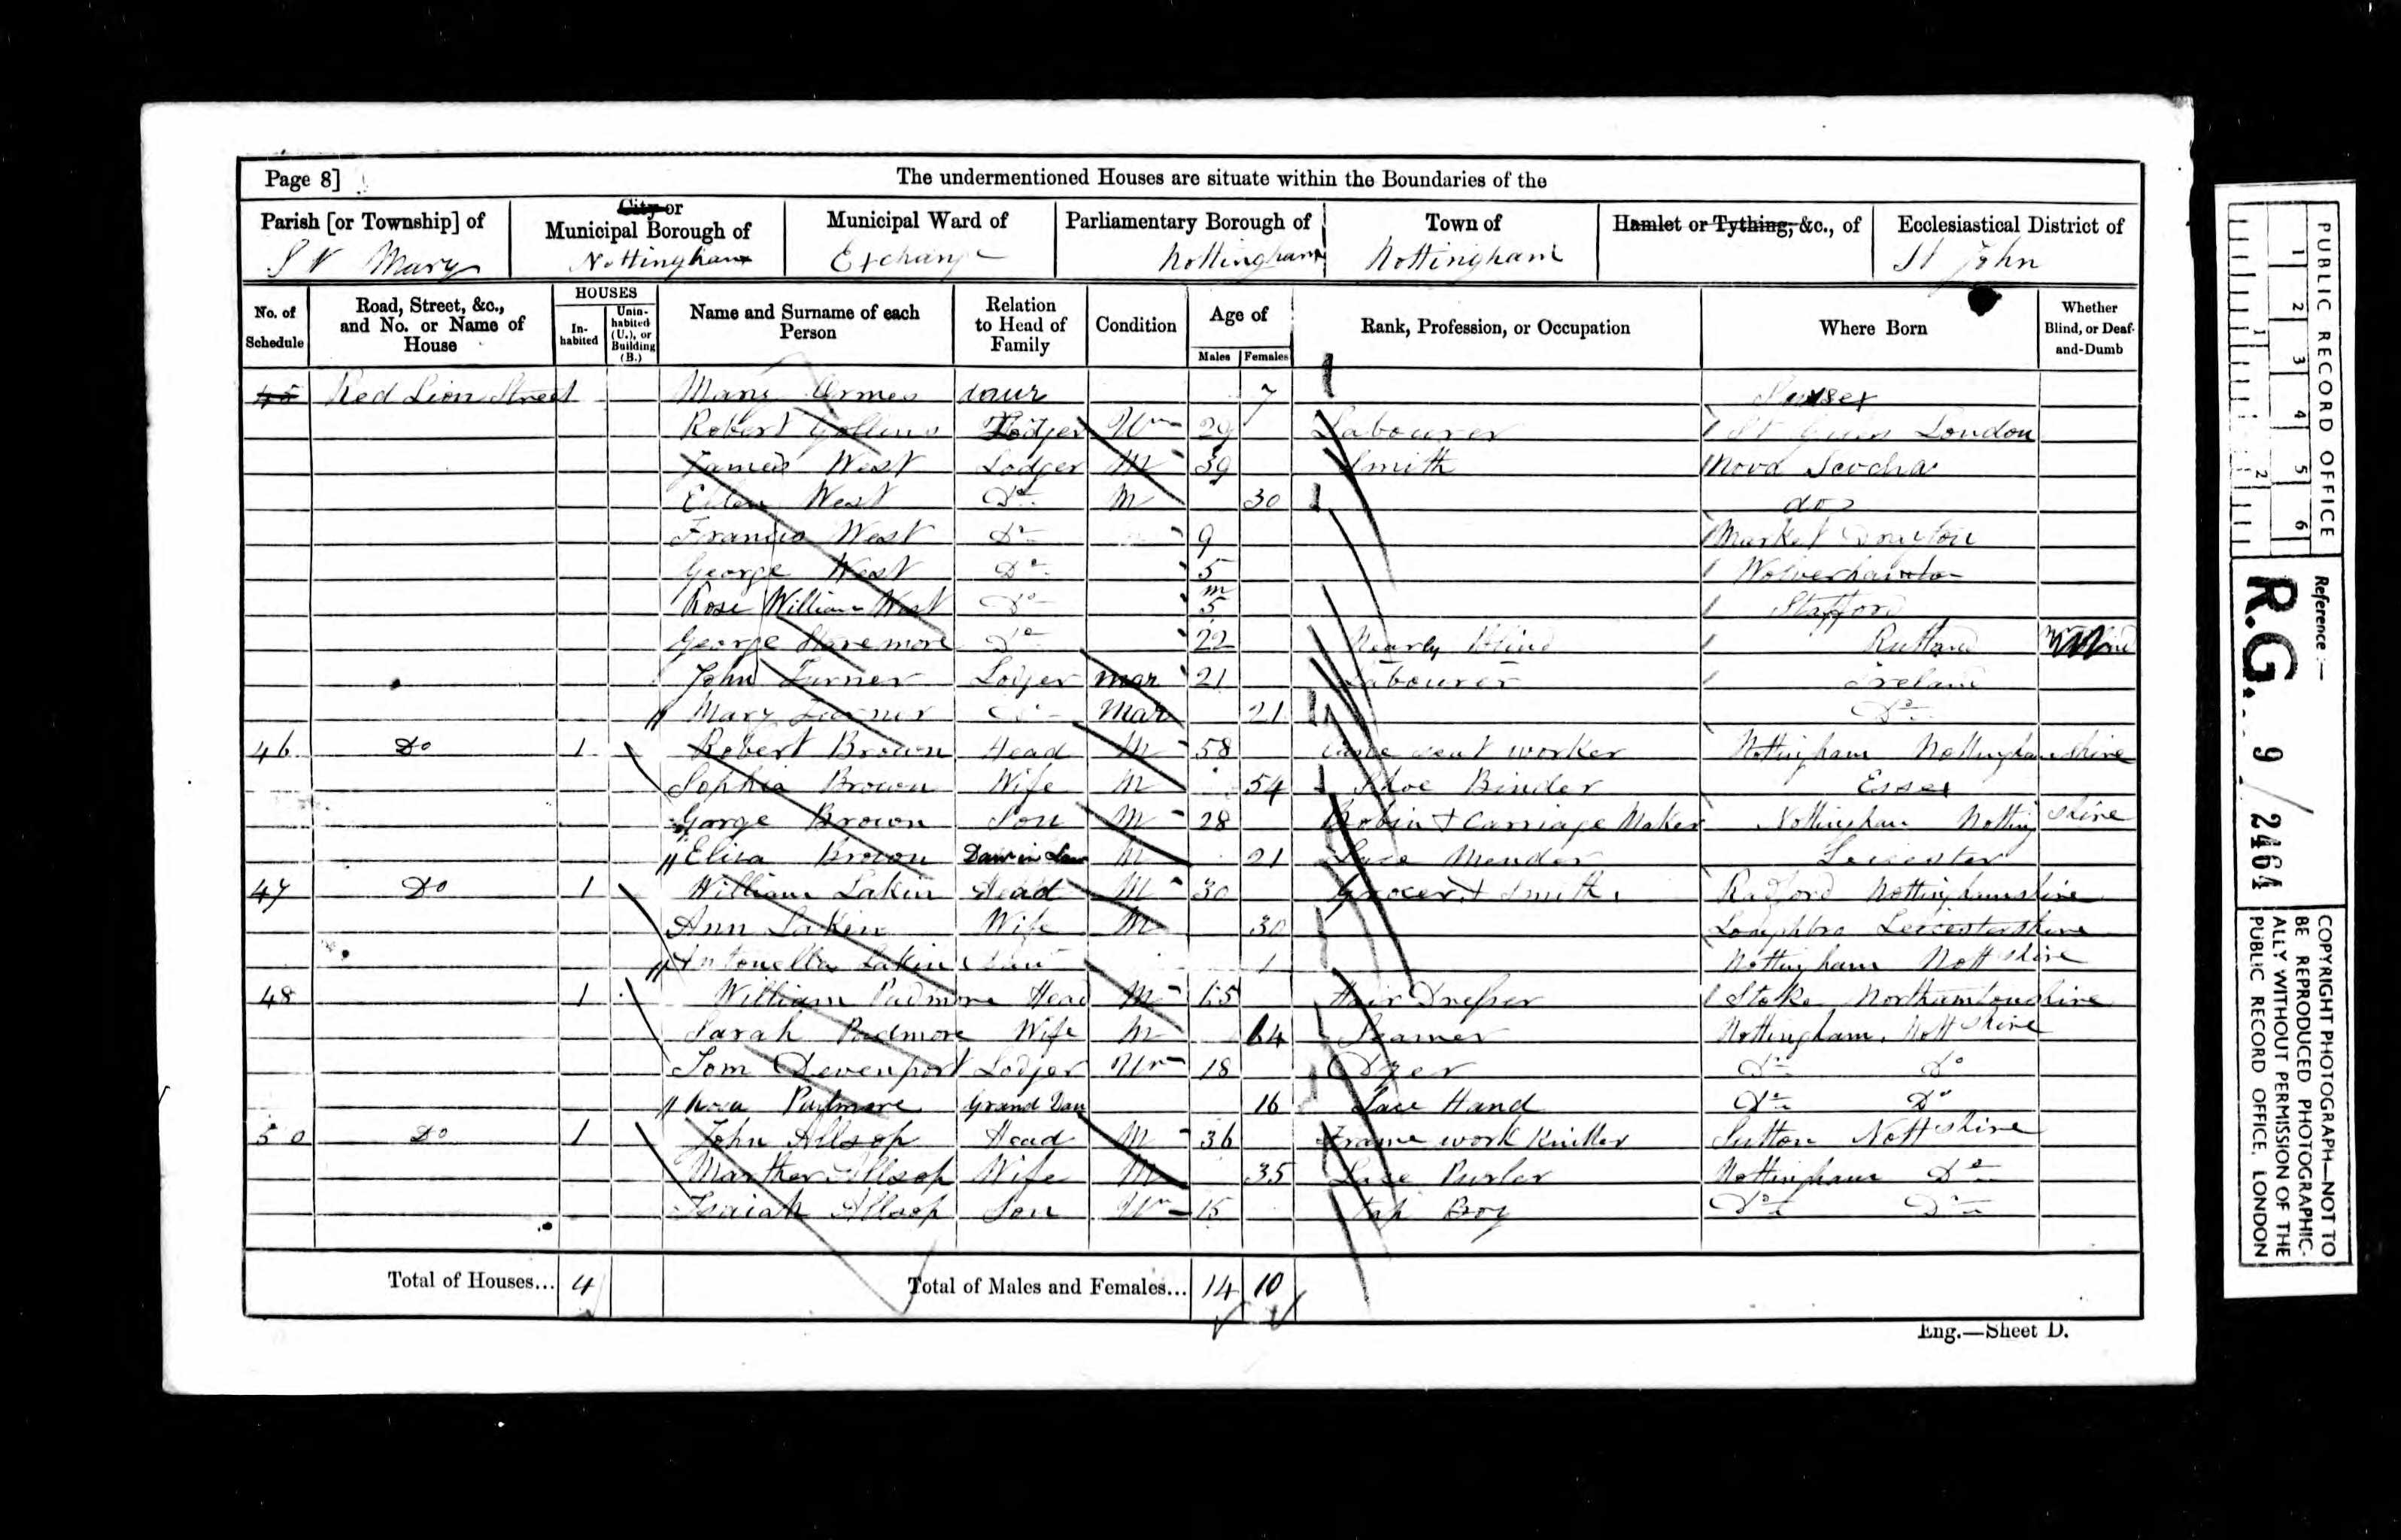 Page 8]
The undermentioned Houses are situate within the Boundaries of the
Parish [or Township] of
St Mary
City or Municipal Borough of
Nottingham
Municipal Ward of
Exchange
Parliamentary Borough of
Nottingham
Town of
Nottingham
Hamlet or Tything, &c., of
Ecclesiastical District of
St John
No. of Schedule
Road, Street, &c., and No. or Name of House
HOUSES
In-habited
Unin-habited (U.), or Building (B.)
Name and Surname of each Person
Relation to Head of Family
Condition
Age of
Males
Females
Rank, Profession, or Occupation
Where Born
Whether Blind, or Deaf-and-Dumb
45 Red Lion Street Mary daur 7
Robert Lodger Un 29 Labourer London
James West Lodger M 39 Smith Nova Scochia
Ellen West Do M 30 do
Francis West Do 9 Market Drayton
George West Do 5
Rose William West Do m 5 Stafford
George Do 22 Nearly Blind Rutland
John Turner Lodger mar 21 Labourer Ireland
Mary Turner Do Mar 21 Do
46 Do 1 Robert Brown Head M 58 Cane seat worker Nottingham Nottinghamshire
Sophia Brown Wife M 54 Shoe Binder Essex
Gorge Brown Son M 28 Bobin & Carriage Maker Nottingham Notting shire
Eliza Brown Daur in Law M 21 Lace Mender Leicester
47 Do 1 William Lakin Head M 30 Grocer & Smith Radford Nottinghamshire
Ann Lakin Wife M 30 Loughbro Leicestershire
Antonella Lakin Dau 1 Nottingham Nottshire
48 1 William Padmore Head M 65 Hair Dresser Stoke Northamtonshire
Sarah Padmore Wife M 64 Seamer Nottingham. Nottshire
Tom Devenport Lodger Un 18 Dyer Do Do
Padmore Grand Dau 16 Lace Hand Do Do
50 Do 1 John Allsop Head M 36 Frame work Knitter Sutton Nottshire
Marther Allsop Wife M 35 Lace Purler Nottingham Do
Isaiah Allsop Son Un 15 Boy Do Do
Total of Houses... 4
Total of Males and Females... 14 10
Eng.—Sheet D.
PUBLIC RECORD OFFICE
1 2 3 4 5 6
1 2
Reference :—
R.G. 9/2464
COPYRIGHT PHOTOGRAPH—NOT TO
BE REPRODUCED PHOTOGRAPHIC-
ALLY WITHOUT PERMISSION OF THE
PUBLIC RECORD OFFICE, LONDON